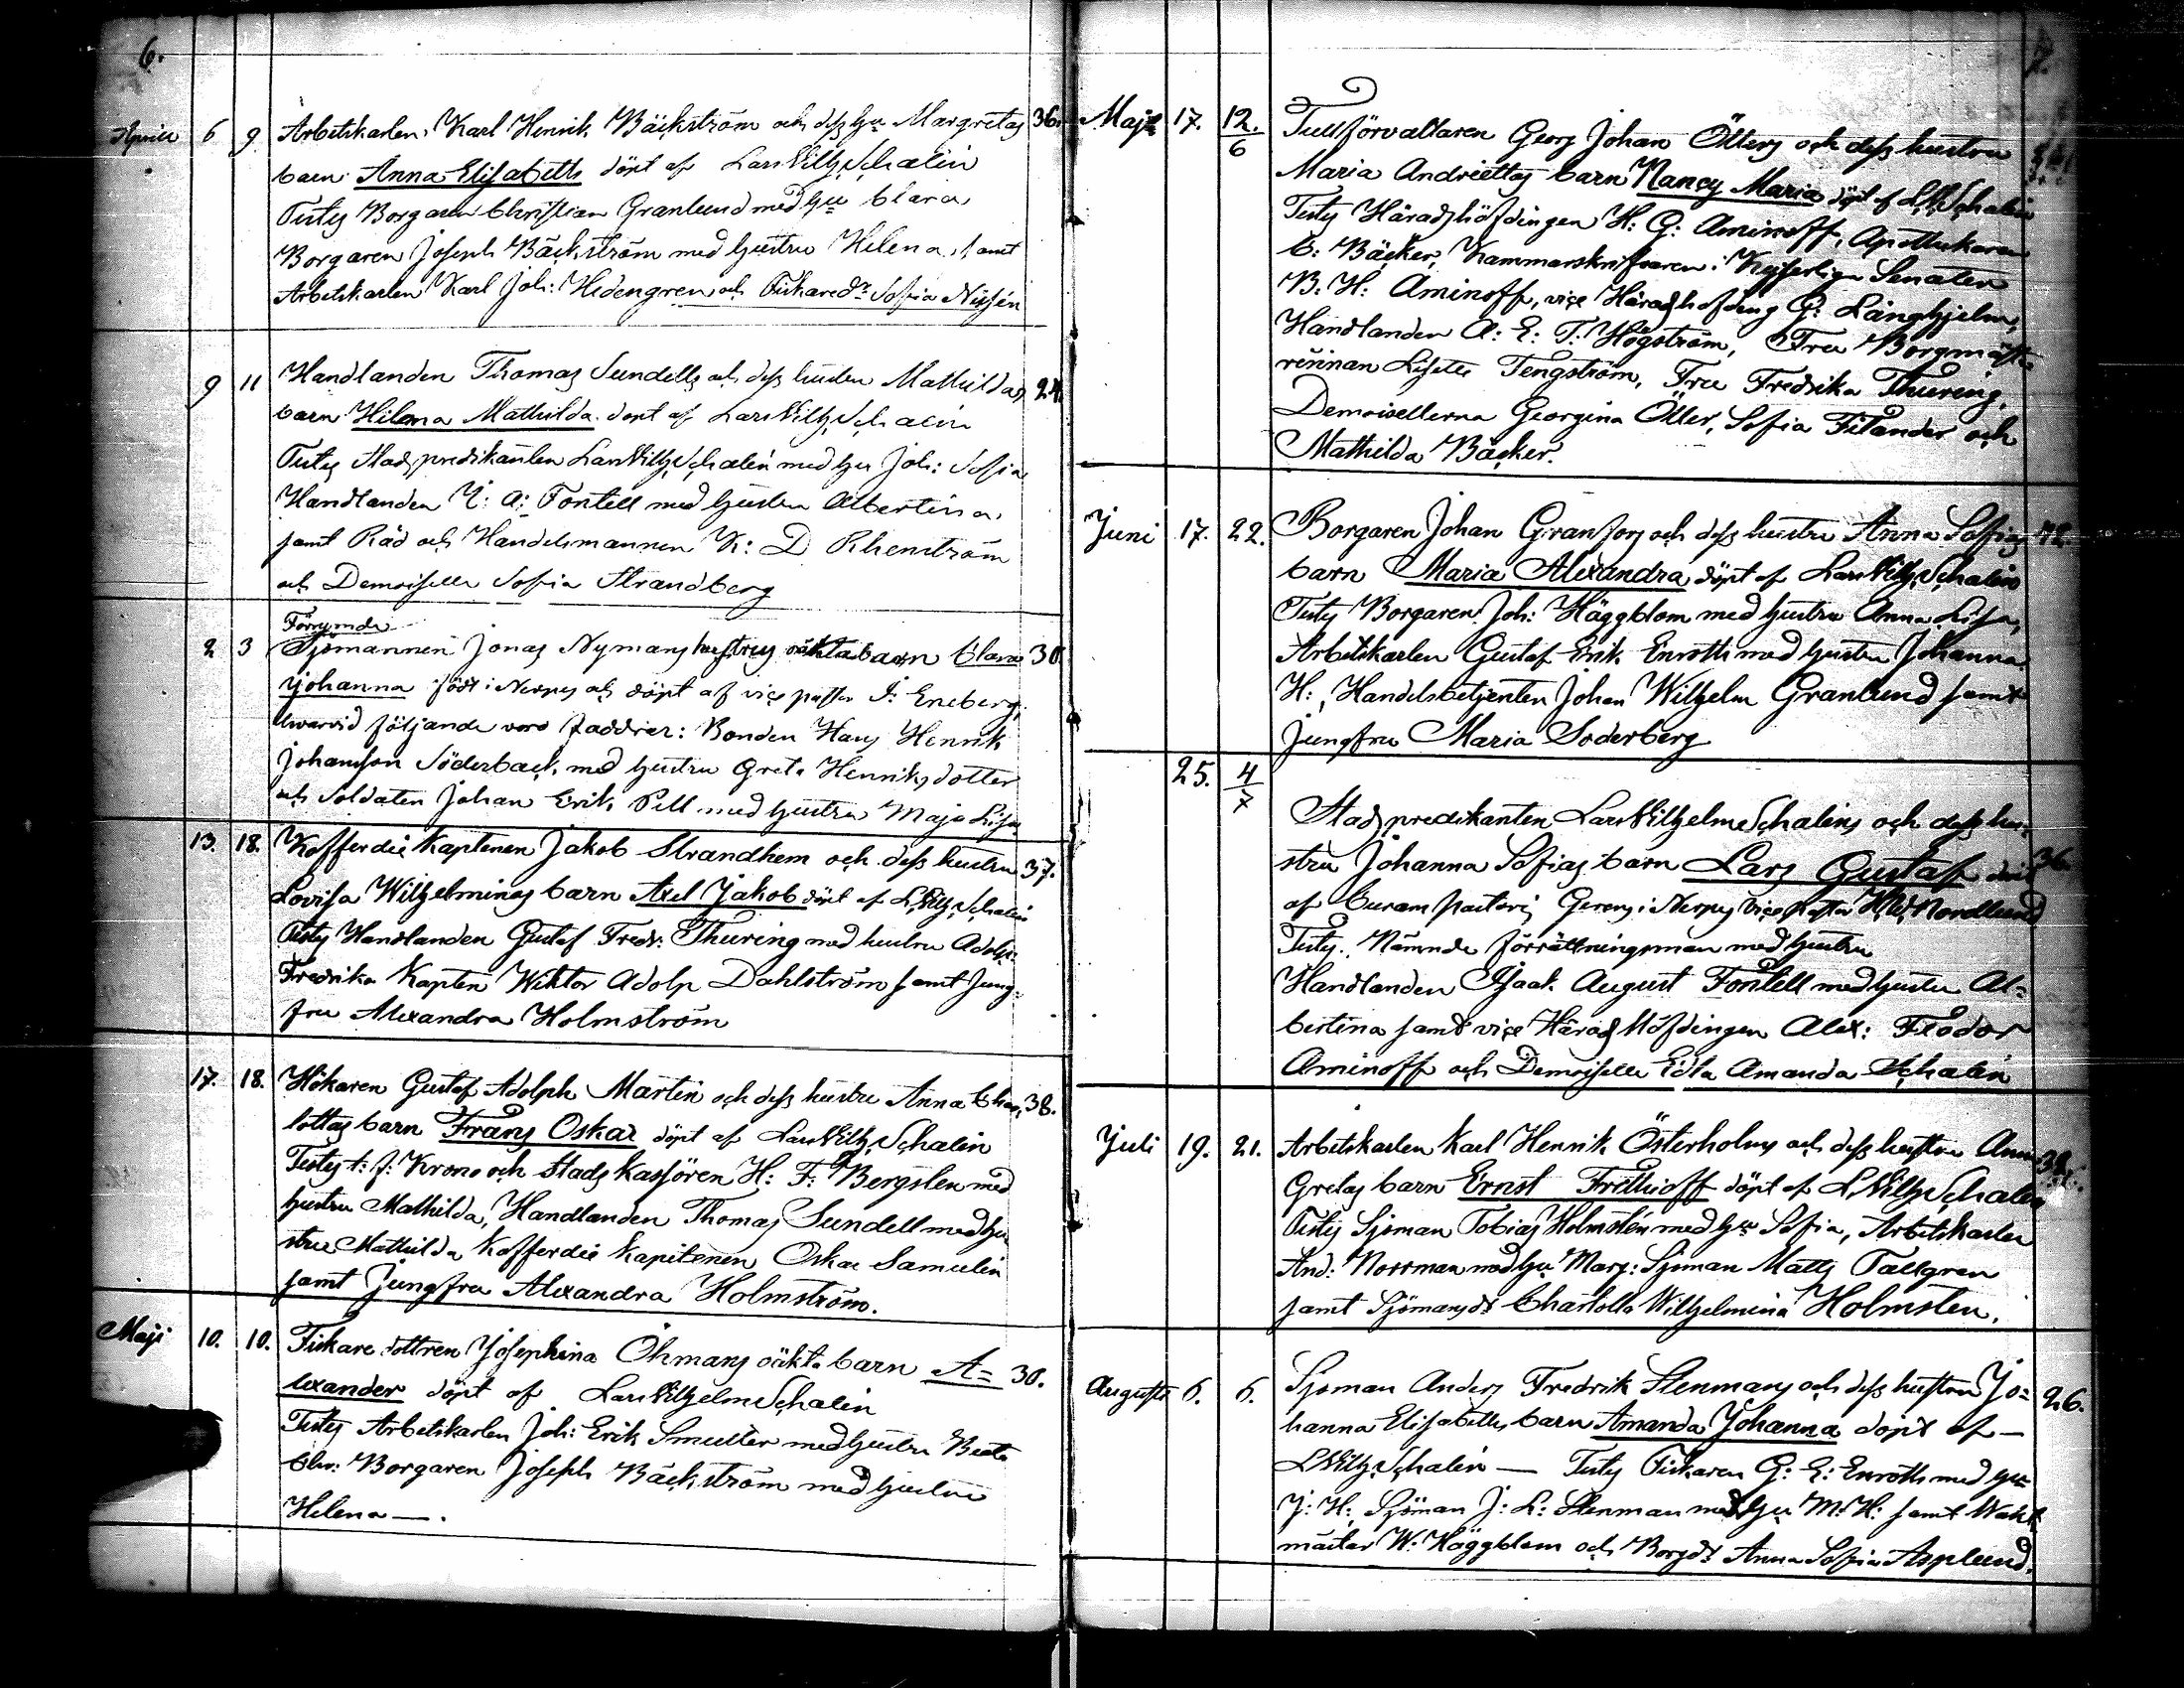 6.
Aprill 6 9 Arbetskarlen Karl Henrik Bäckström och dess hu Margretas 36.
barn Anna Elisabeth döpt af Lars Wilh. Schalin
Testes Borgaren Christian Granlund med hu Clara,
Borgaren Joseph Bäckström med hustru Helena, samt
Arbetskarlen Karl Joh: Hedengren och Fiskaredr Sofia Nissén
9 11 Handlanden Thomas Sundells och dess hustru Mathildas 24.
barn Hilma Mathilda döpt af Lars Wilh. Schalin
Testes Stadspredikanten Lars Wilh. Schalin med hu Joh: Sofia
Handlanden I: A: Fontell med hustru Albertina,
samt Råd och Handelsmannen K: D Rhenström
och Demoiselle Sofia Strandberg
Förrymde
2 3 Sjömannen Jonas Nymans hustrus oäkta barn Clara 30.
Johanna född i Nerpes och döpt af vice pastor I: Eneberg,
hvarvid följande voro faddrar: Bonden Hans Henrik
Johansson Söderback med hustru Greta Henriksdotter
och Soldaten Johan Erik Pill med hustru Maja Lisa
13. 18. Kofferdie Kaptenen Jakob Strandhem och dess hustru 37.
Lovisa Wilhelminas barn Axel Jakob döpt af L. Wilh. Schalin
Testes Handlanden Gustaf Fredr: Thuring med hustru Adolf:
Fredrika Kapten Wiktor Adolp Dahlström samt Jung-
fru Alexandra Holmström
17. 18. Hökaren Gustaf Adolph Martin och dess hustru Anna Char- 38.
lottas barn Frans Oskar döpt af Lars Wilh. Schalin
Testes t: f: Krono och Stads Kassören H: F: Bergsten med
hustru Mathilda, Handlanden Thomas Sundell med hu
stru Mathilda Kofferdie Kapitenen Oskar Samulin
samt Jungfru Alexandra Holmström.
Maji 10. 10. Fiskare dottren Josephina Öhmans oäkta barn A= 30.
lexander döpt af Lars Wilhelm Schalin
Testes Arbetskarlen Joh: Erik Smulter med hustru Beata
Chr: Borgaren Joseph Bäckström med hustru
Helena —.
7.
Maji 17. 12./6 Tullförvaltaren Georg Johan Öllers och dess hustru
Maria Andriettas barn Nancy Maria döpt af L. W. Schalin
Testes Häradshöfdingen H: G: Aminoff, Apothekaren
C: Bäcker, Kammarskrifvaren i Kejserliga Senaten
B: H: Aminoff, vice Häradshöfding G: Långhjelm,
Handlanden A: E: T: Högström, Fru Borgmäste
rinnan Lisette Tengström, Fru Fredrika Thuring,
Demoisellerna Georgina Öller, Sofia Filander och
Mathilda Bäcker.
Juni 17. 22. Borgaren Johan Granfors och dess hustru Anna Sofias 42
barn Maria Alexandra döpt af Lars Wilh. Schalin
Testes Borgaren Joh: Häggblom med hustru Anna Lisa,
Arbetskarlen Gustaf Erik Enroth med hustru Johanna
H:, Handelsbetjenten Johan Wilhelm Granlund samt
Jungfru Maria Söderberg
25. 4/7 Stadspredikanten Lars Wilhelm Schalins och dess hu-
stru Johanna Sofias barn Lars Gustaf döpt 36.
af Curam pastoris Gerens i Nerpes Vice Pastor Nordlund
Testes. Nämnde förrättningsman med hustru
Handlanden Isaak August Fontell med hustru Al=
bertina samt vice Häradshöfdingen Alex: Feodor
Aminoff och Demoiselle Edla Amanda Schalin
Juli 19. 21. Arbetskarlen Karl Henrik Österholms och dess hustru Anna 38.
Gretas barn Ernst Frithioff döpt af L. Wilh. Schalin
Testes Sjöman Tobias Holmstén med hu Sofia, Arbetskarlen
And: Norrman med hu Marg: Sjöman Matts Tallgren
samt Sjömansdr Charlotta Wilhelmina Holmsten.
Augusti 6. 6. Sjöman Anders Fredrik Stenmans och dess hustru Jo= 26.
hanna Elisabeths barn Amanda Johanna döpt af —
L. Wilh. Schalin — Testes Fiskaren G: E: Enroth med hu
J: H:, Sjöman J: L: Stenman med hu M: H: samt Wakt
mästar W: Häggblom och Borgdr Anna Sofia Asplund.